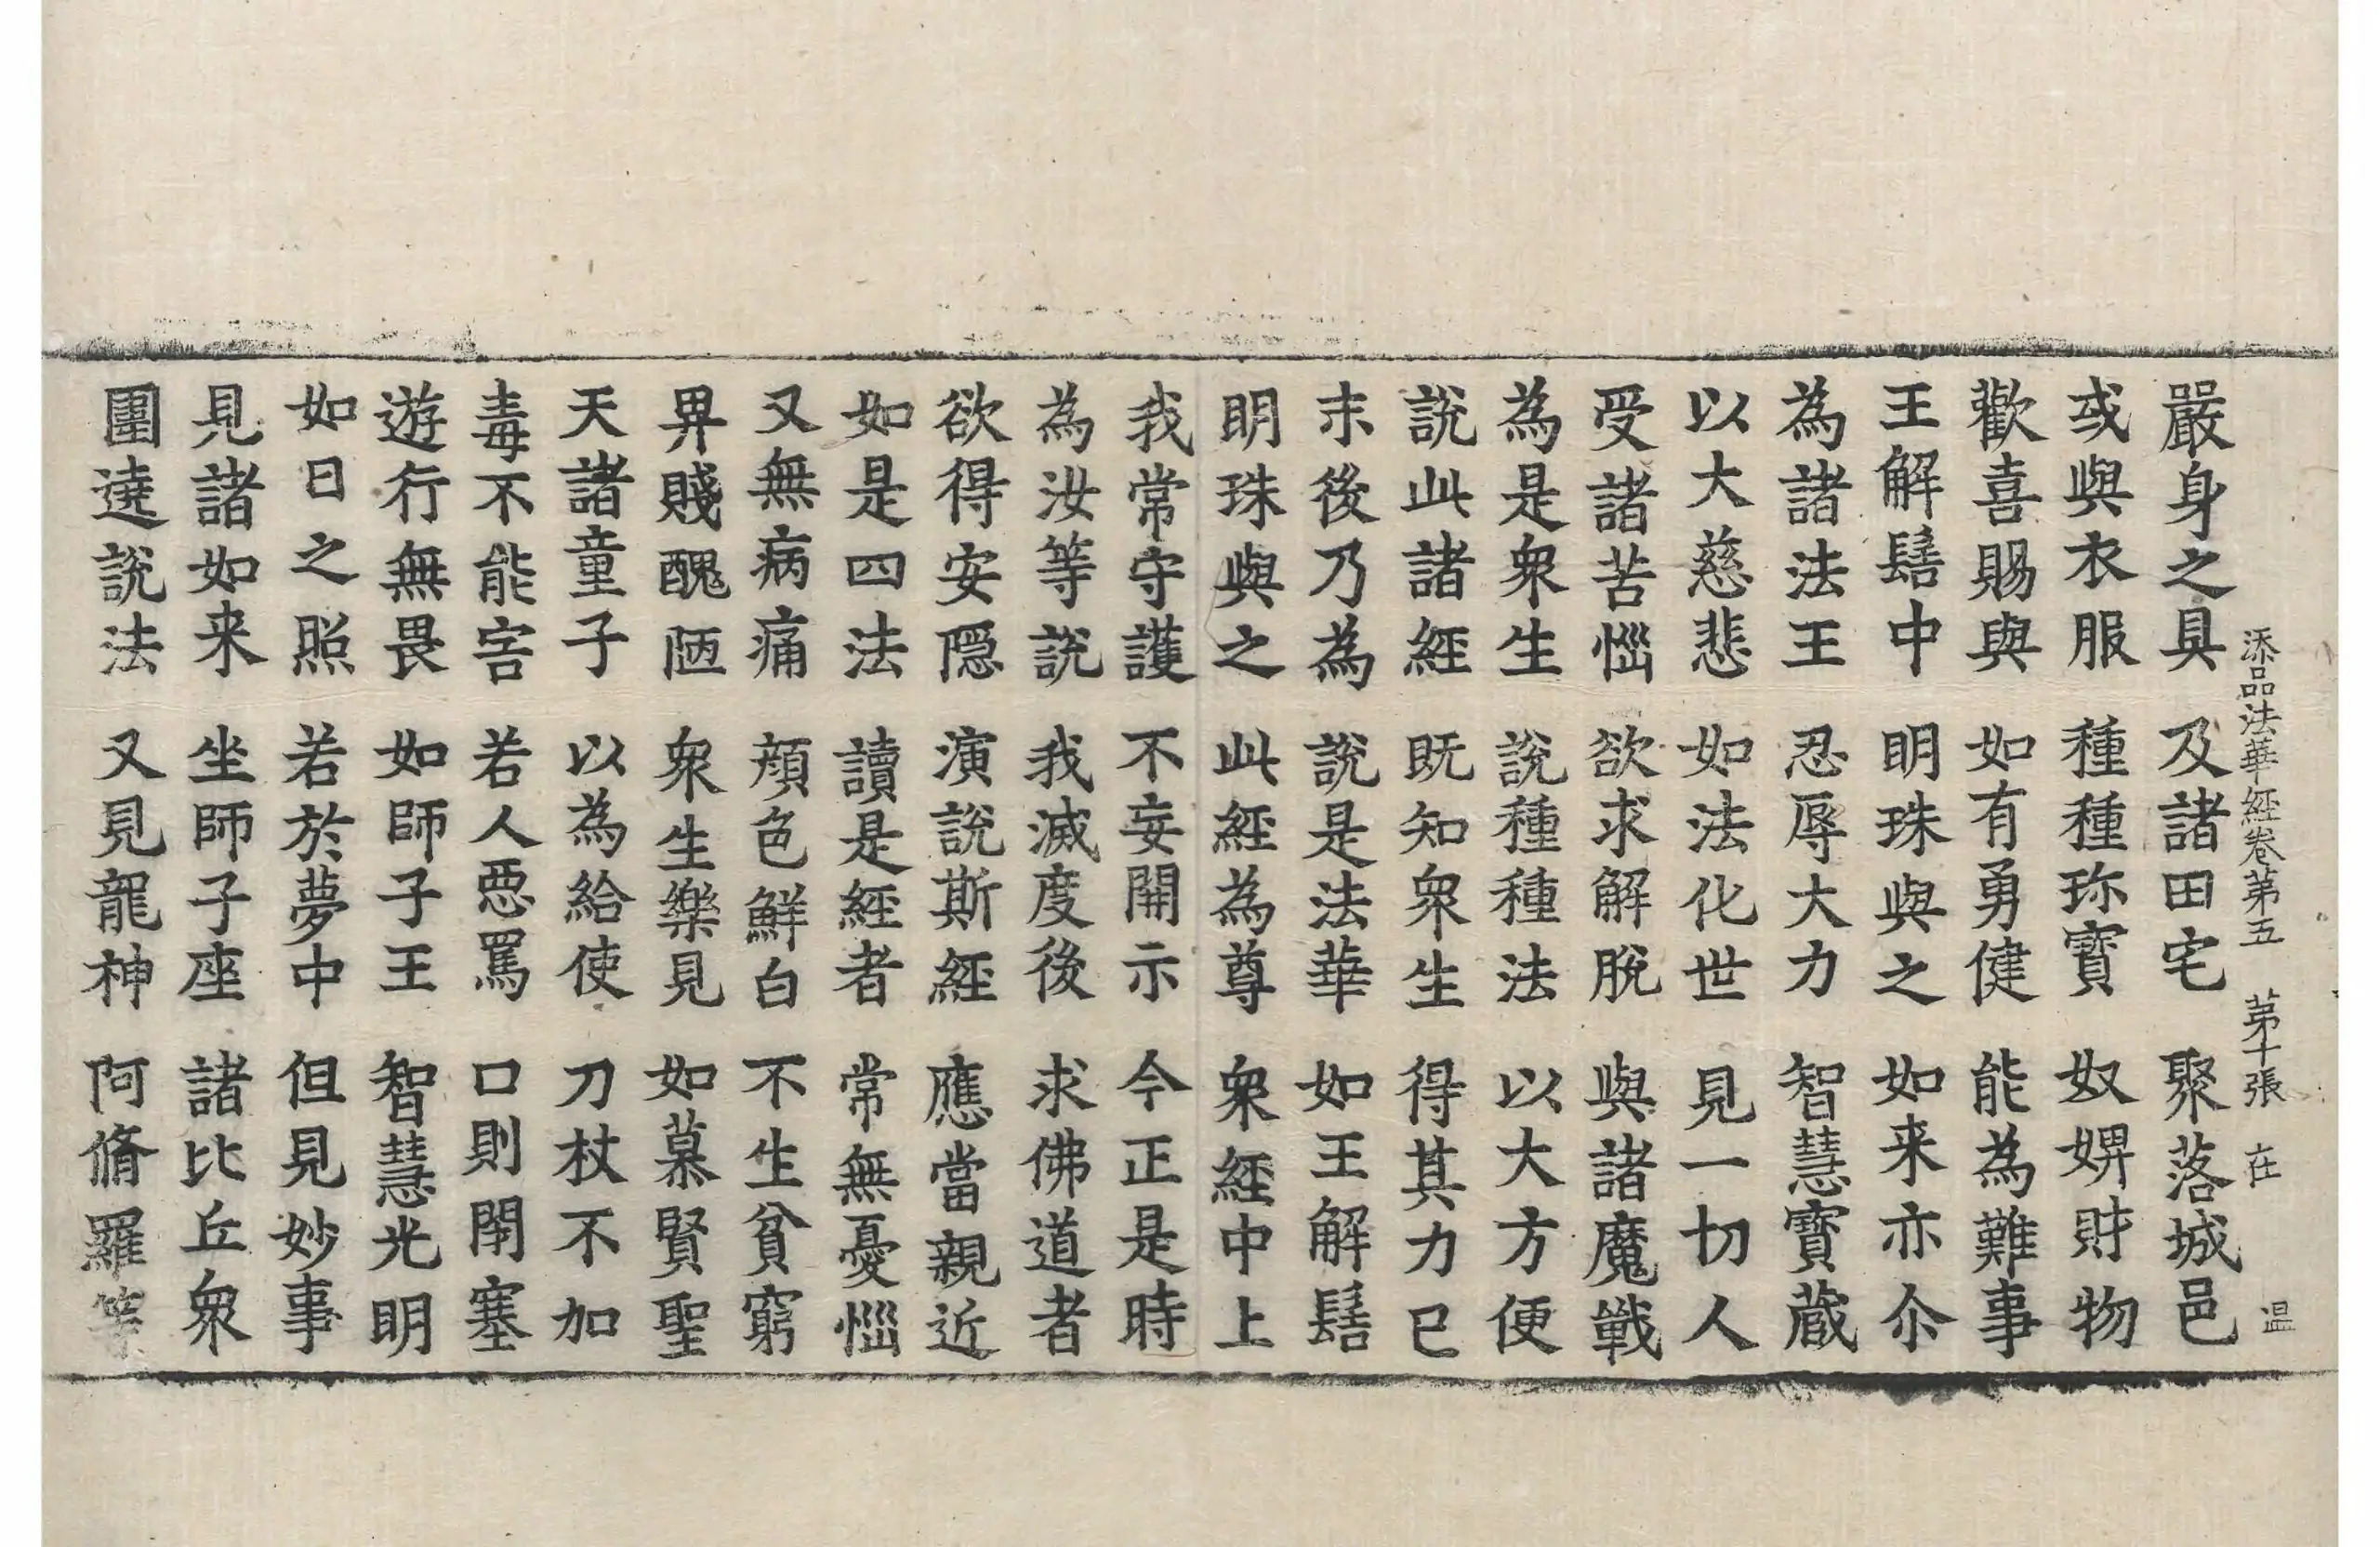 添品法華經卷第五 第十張 在 温
嚴身之具 及諸田宅 聚落城邑
或與衣服 種種珎寶 奴婢財物
歡喜賜與 如有勇健 能為難事
王解髻中 明珠與之 如来亦尒
為諸法王 忍辱大力 智慧寶藏
以大慈悲 如法化世 見一切人
受諸苦惱 欲求解脫 與諸魔戰
為是衆生 說種種法 以大方便
說此諸經 既知衆生 得其力已
末後乃為 說是法華 如王解髻
明珠與之 此經為尊 衆經中上
我常守護 不妄開示 今正是時
為汝等說 我滅度後 求佛道者
欲得安隱 演說斯經 應當親近
如是四法 讀是經者 常無憂惱
又無病痛 顔色鮮白 不生貧窮
畀賤醜陋 衆生樂見 如慕賢聖
天諸童子 以為給使 刀杖不加
毒不能害 若人惡罵 口則閇塞
遊行無畏 如師子王 智慧光明
如日之照 若於夢中 但見妙事
見諸如来 坐師子座 諸比丘衆
圍遶說法 又見龍神 阿脩羅等